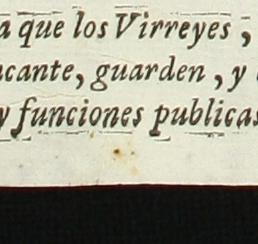 a que los Virreyes,
cante, guarden, y
y funciones publicas